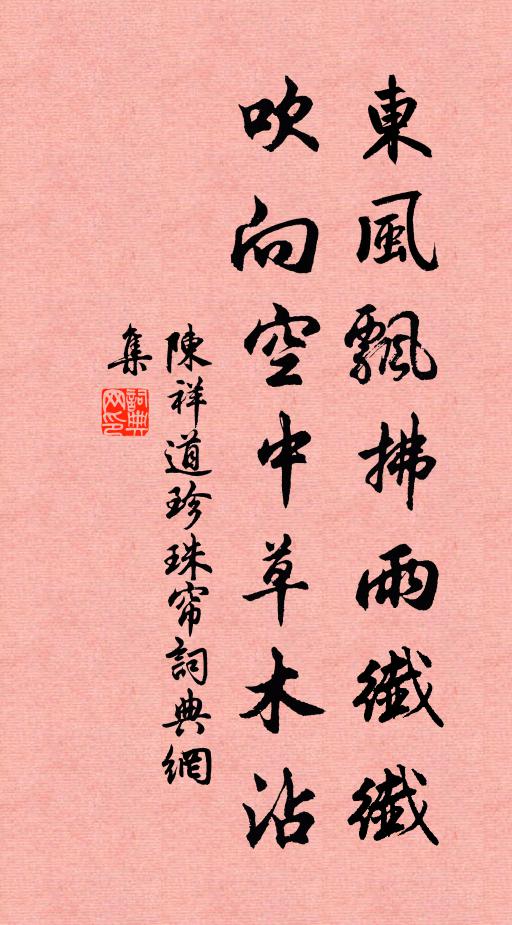 東風飄拂雨纖纖
吹向空中草木沾
陳祥道珍珠帘詞典網
集
詞典
网印